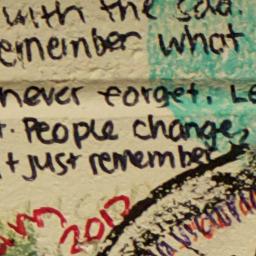 with the
remember what
never forget. Le
t. People change,
't just remember
2017